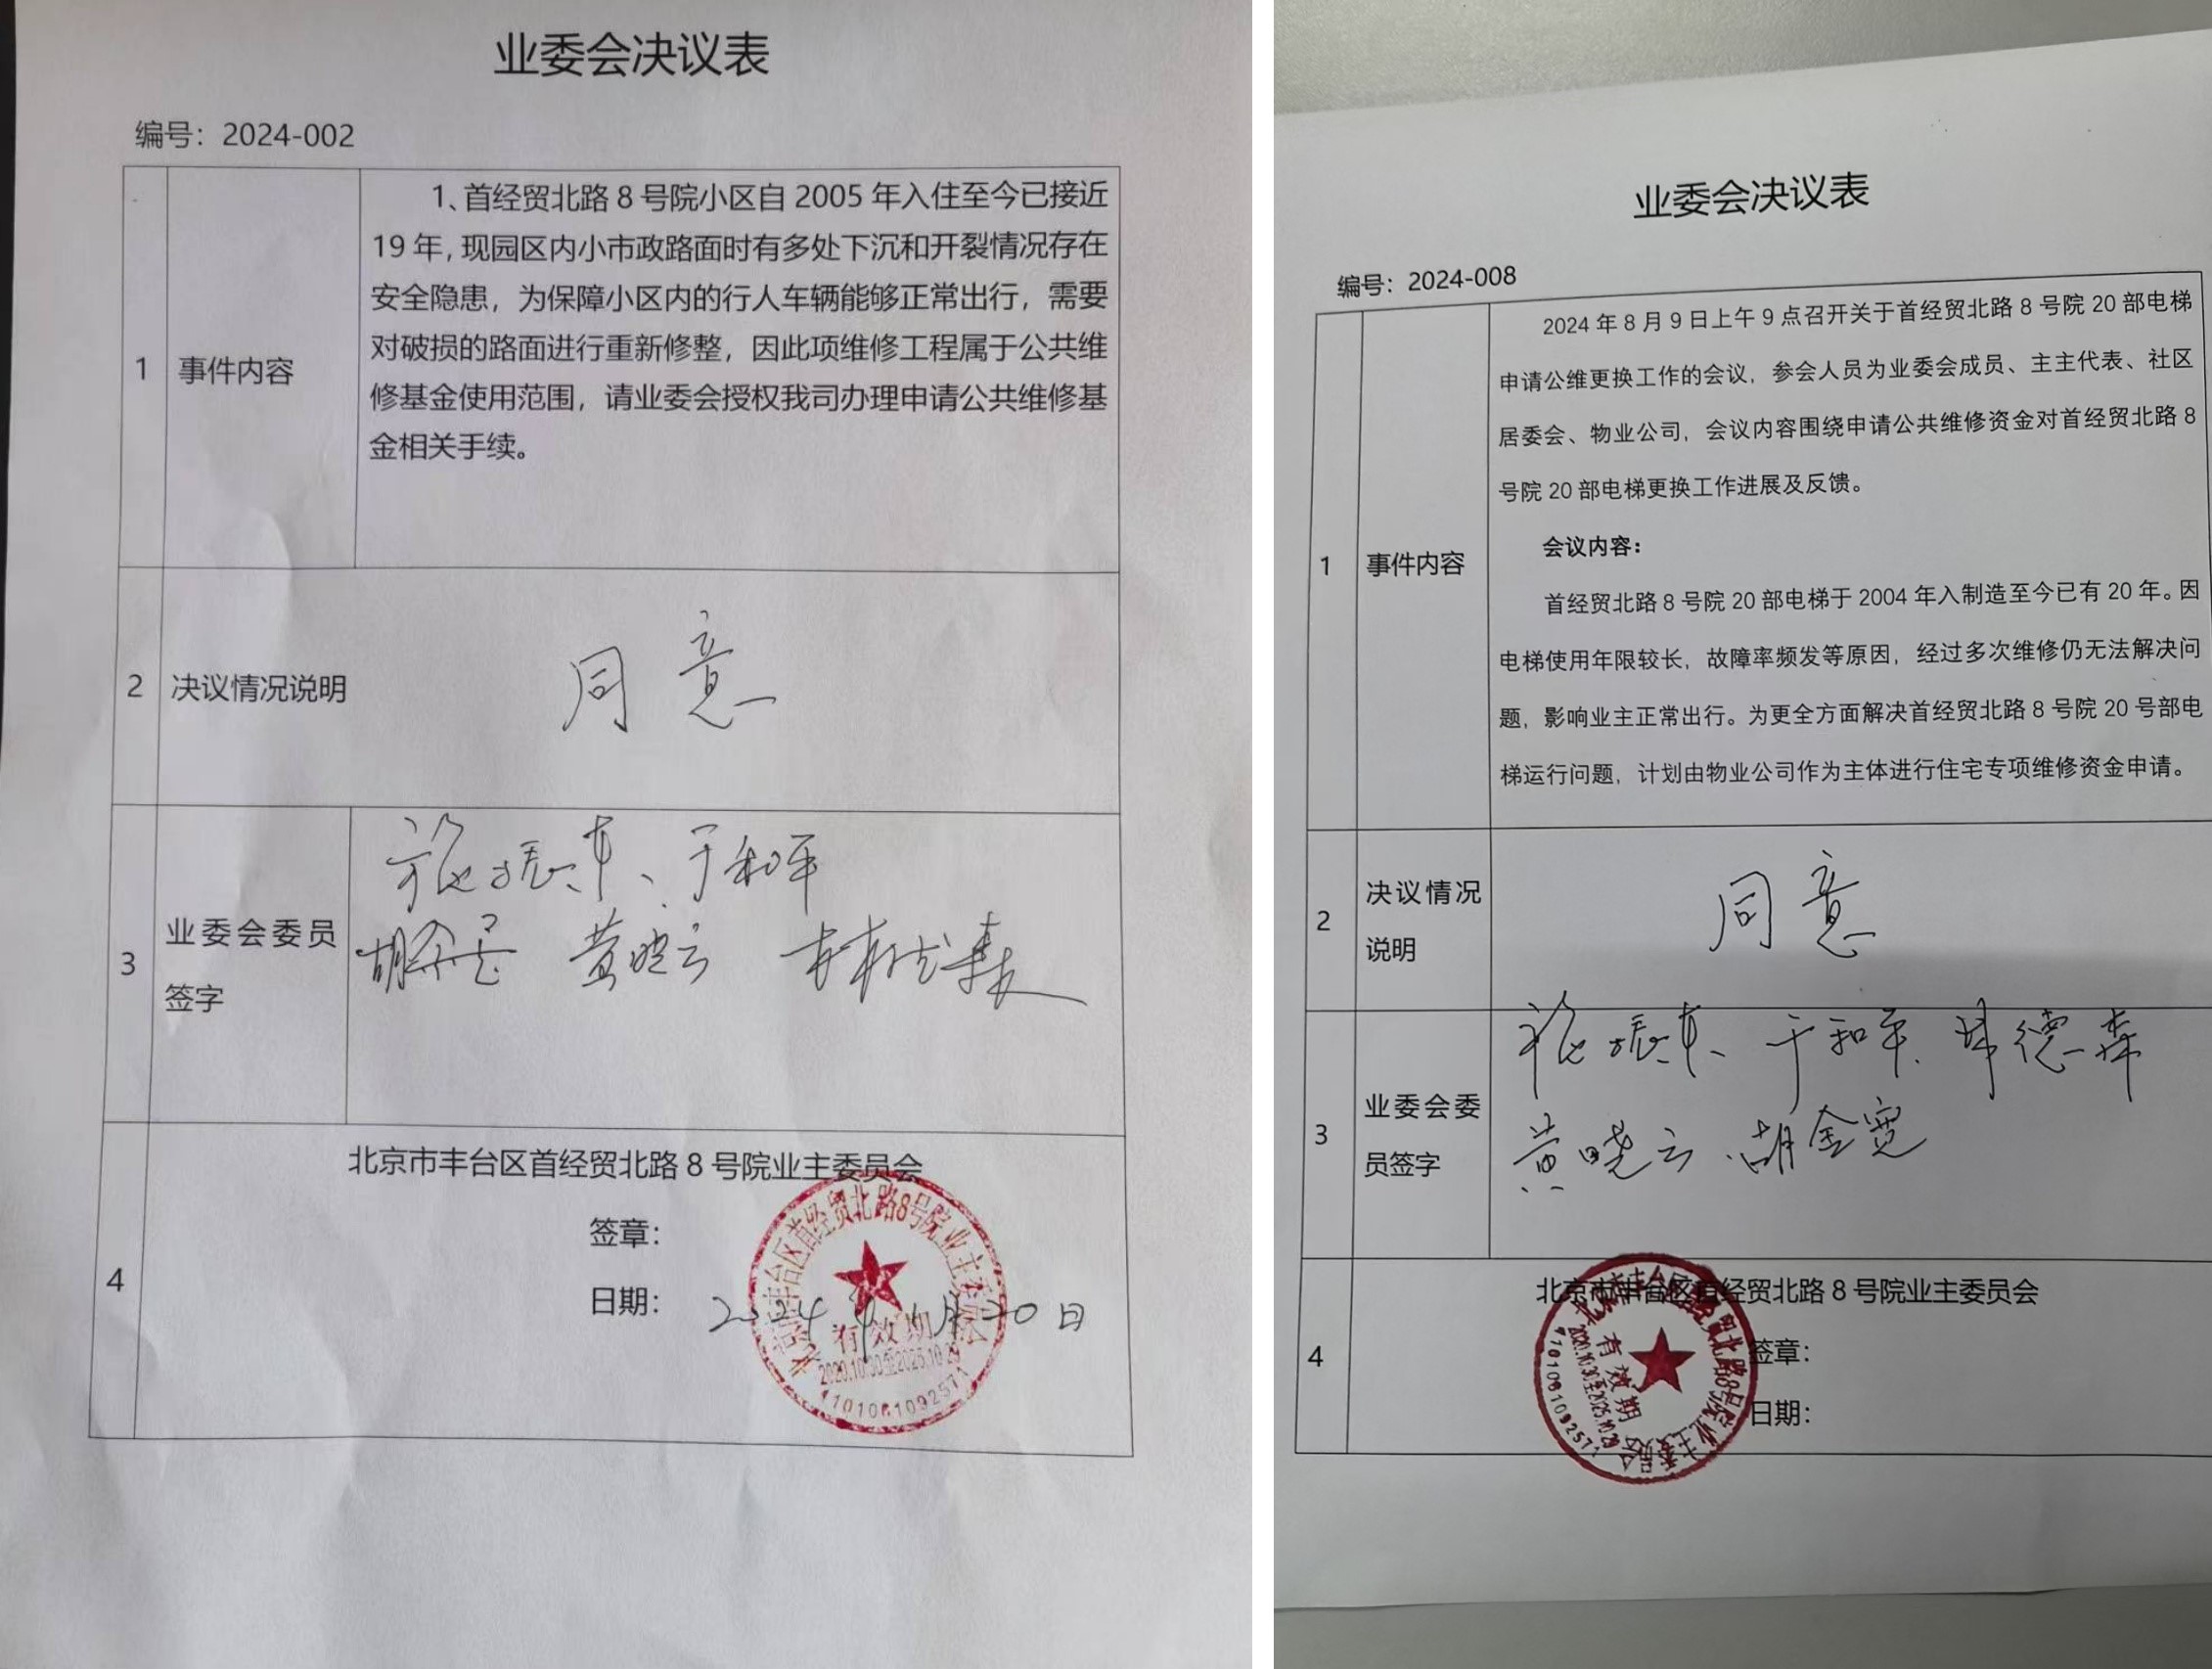 业委会决议表
编号：2024-002
1
事件内容
1、首经贸北路 8 号院小区自 2005 年入住至今已接近
19 年，现园区内小市政路面时有多处下沉和开裂情况存在
安全隐患，为保障小区内的行人车辆能够正常出行，需要
对破损的路面进行重新修整，因此项维修工程属于公共维
修基金使用范围，请业委会授权我司办理申请公共维修基
金相关手续。
2
决议情况说明
同意
3
业委会委员
签字
施振东、于和平
黄晓云
4
北京市丰台区首经贸北路 8 号院业主委员会
签章：
日期：
2024年 月20日
北京市丰台区首经贸北路8号院业主委员会
有效期
2020.10.30至2025.10.29
1101061092571
业委会决议表
编号：2024-008
1
事件内容
2024 年 8 月 9 日上午 9 点召开关于首经贸北路 8 号院 20 部电梯
申请公维更换工作的会议，参会人员为业委会成员、主主代表、社区
居委会、物业公司，会议内容围绕申请公共维修资金对首经贸北路 8
号院 20 部电梯更换工作进展及反馈。
会议内容：
首经贸北路 8 号院 20 部电梯于 2004 年入制造至今已有 20 年。因
电梯使用年限较长，故障率频发等原因，经过多次维修仍无法解决问
题，影响业主正常出行。为更全方面解决首经贸北路 8 号院 20 号部电
梯运行问题，计划由物业公司作为主体进行住宅专项维修资金申请。
2
决议情况
说明
同意
3
业委会委
员签字
施振东、于和平、 德森
黄晓云、胡金宽
4
北京市丰台区首经贸北路 8 号院业主委员会
签章：
日期：
北京市丰台区首经贸北路8号院业主委员会
有效期
2020.10.30至2025.10.29
1101061092571